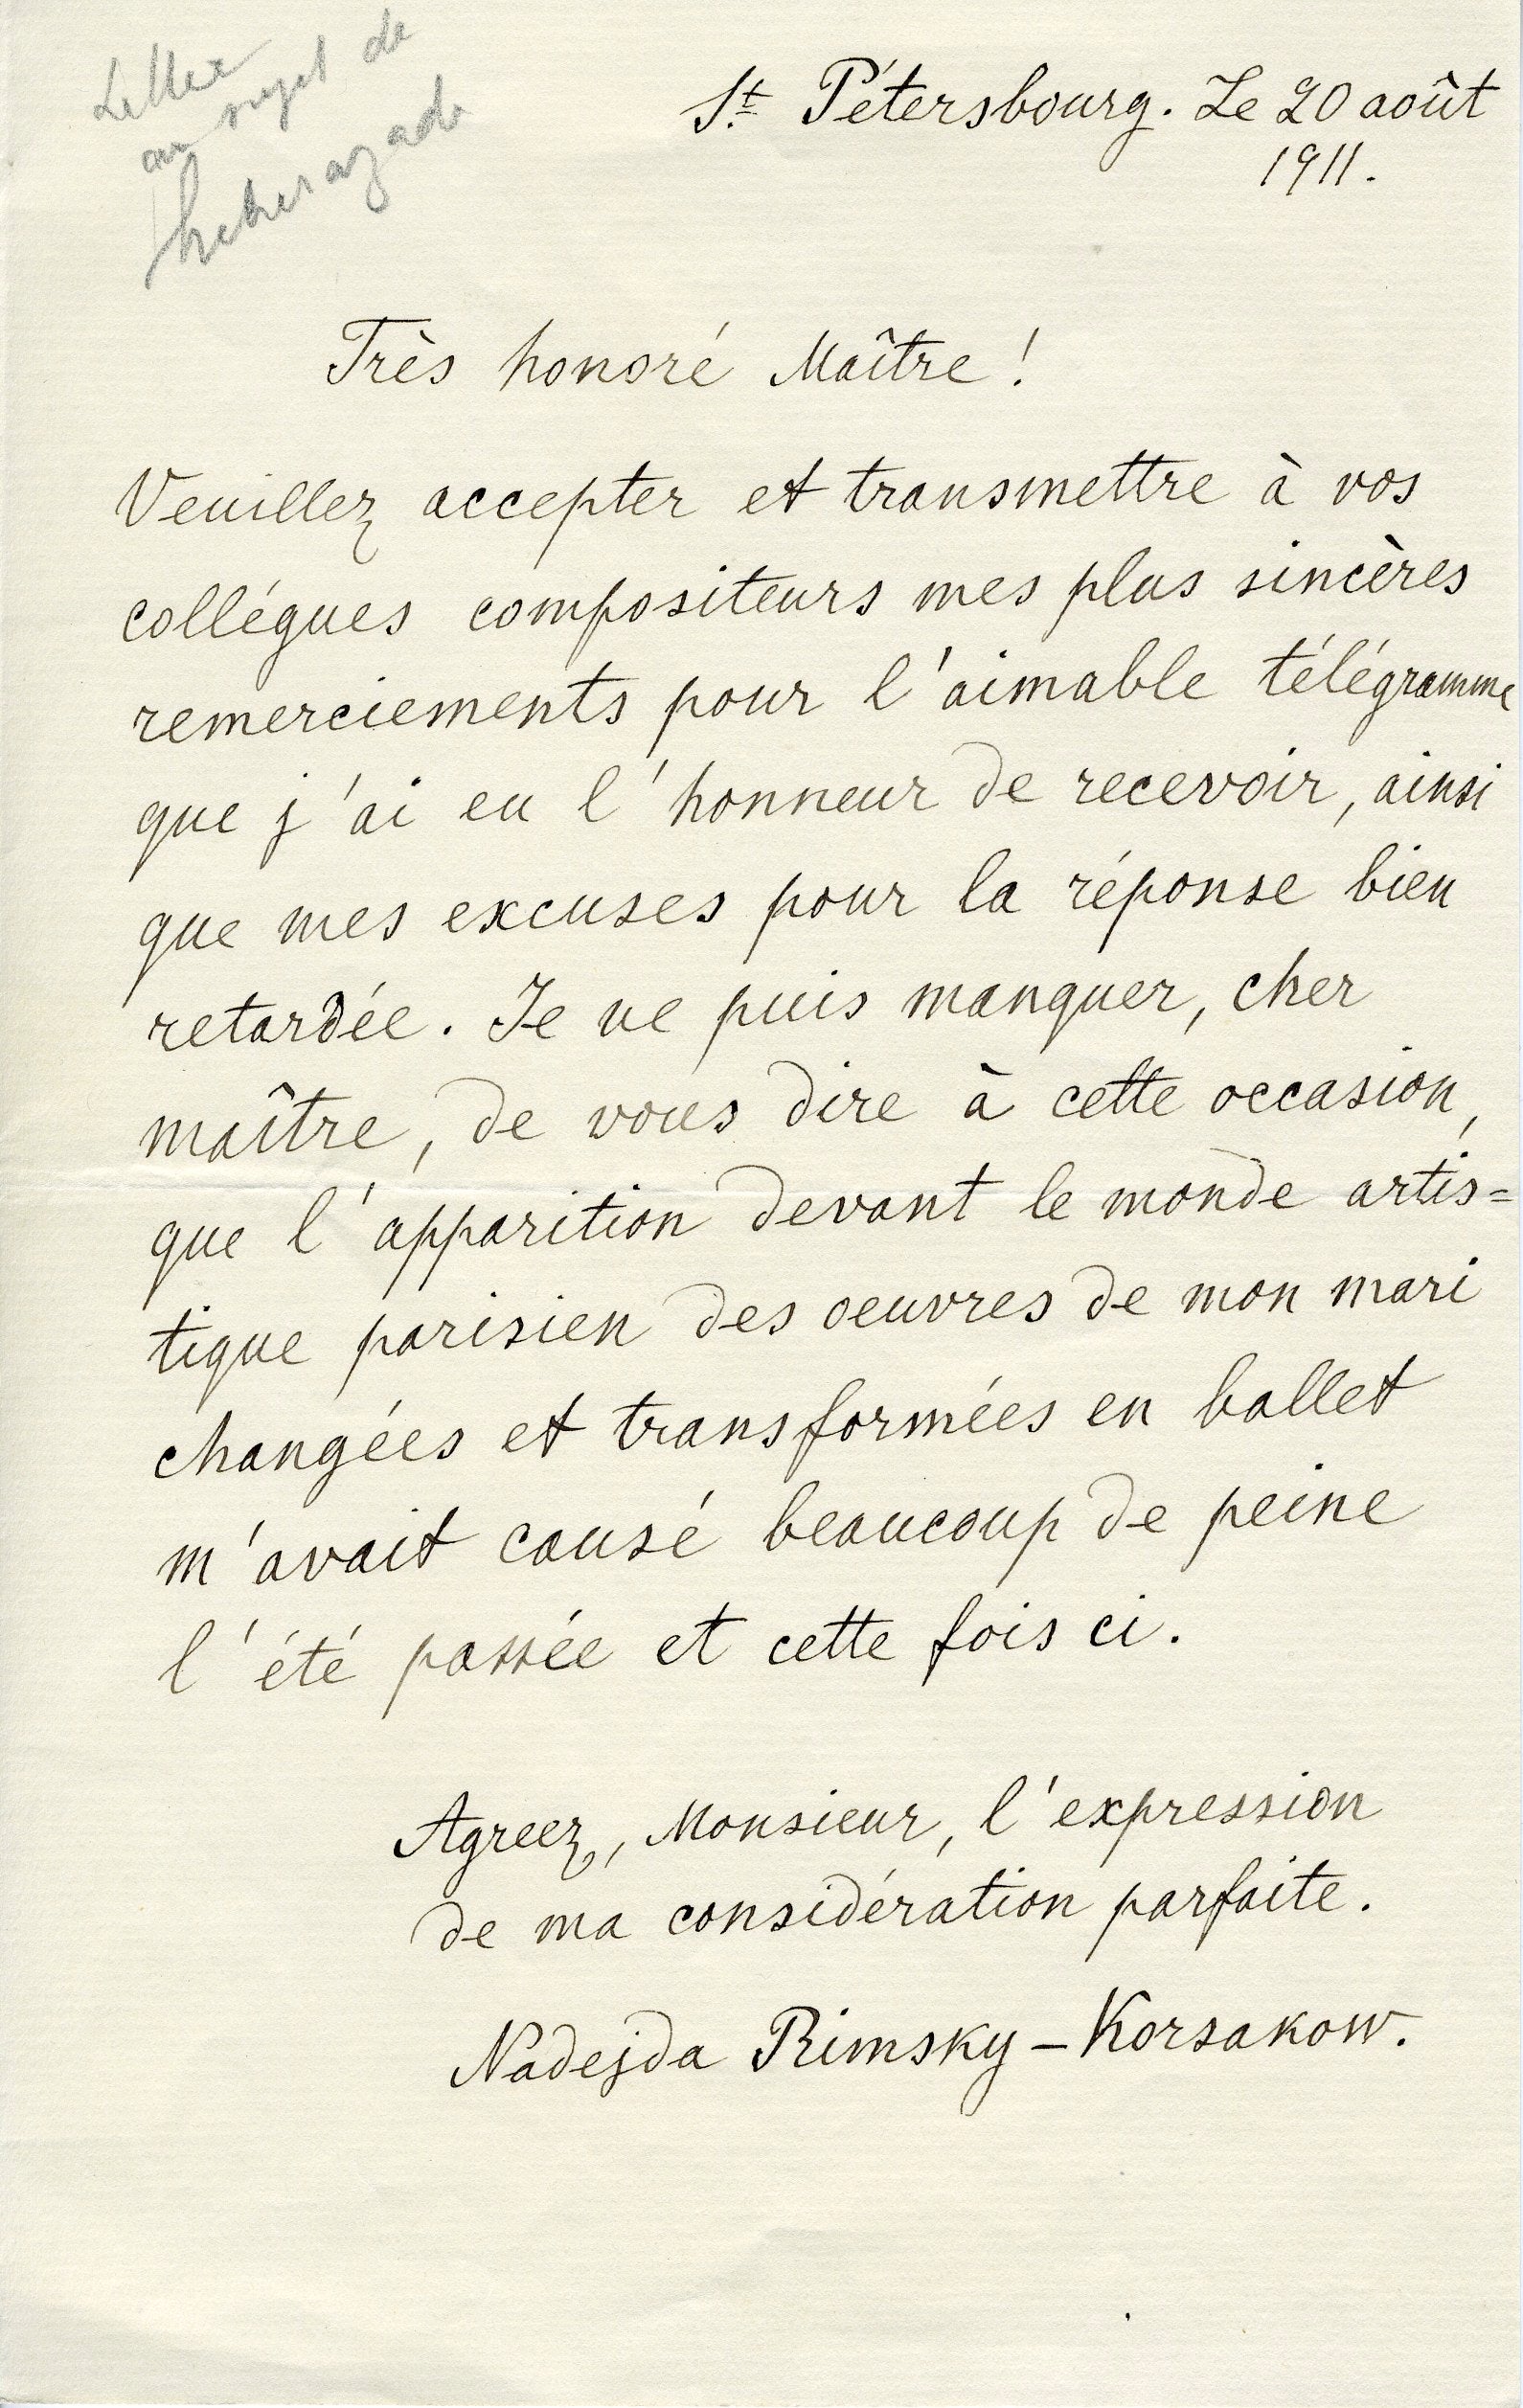 Lettre
au sujet de
Sheherazade
St Pétersbourg. Le 20 août
1911.
Très honoré Maître !
Veuillez accepter et transmettre à vos
collégues compositeurs mes plus sincères
remerciements pour l'aimable télégramme
que j'ai eu l'honneur de recevoir, ainsi
que mes excuses pour la réponse bien
retardée. Je ne puis manquer, cher
maître, de vous dire à cette occasion,
que l'apparition devant le monde artis=
tique parisien des oeuvres de mon mari
changées et transformées en ballet
m'avait causé beaucoup de peine
l'été passée et cette fois ci.
Agreez, Monsieur, l'expression
de ma considération parfaite.
Nadejda Rimsky-Korsakow.